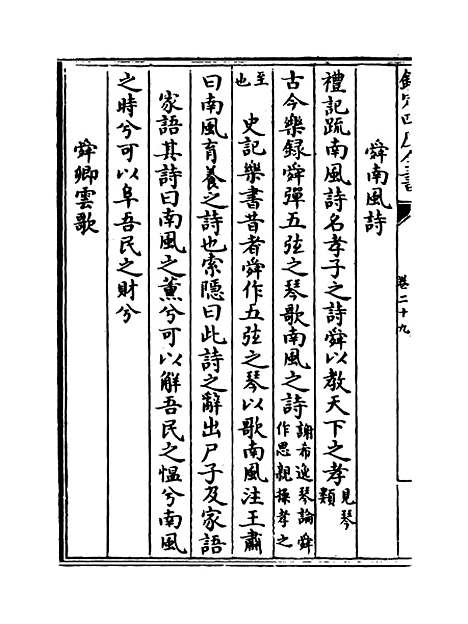 欽定四庫全書
卷二十九
舜南風詩
禮記疏南風詩名孝子之詩舜以教天下之孝見琴類
古今樂録舜彈五弦之琴歌南風之詩謝希逸琴論舜作思親操孝之
至也
史記樂書昔者舜作五弦之琴以歌南風注王肅
曰南風育養之詩也索隱曰此詩之辭出尸子及家語
家語其詩曰南風之薫兮可以解吾民之愠兮南風
之時兮可以阜吾民之財兮
舜卿雲歌